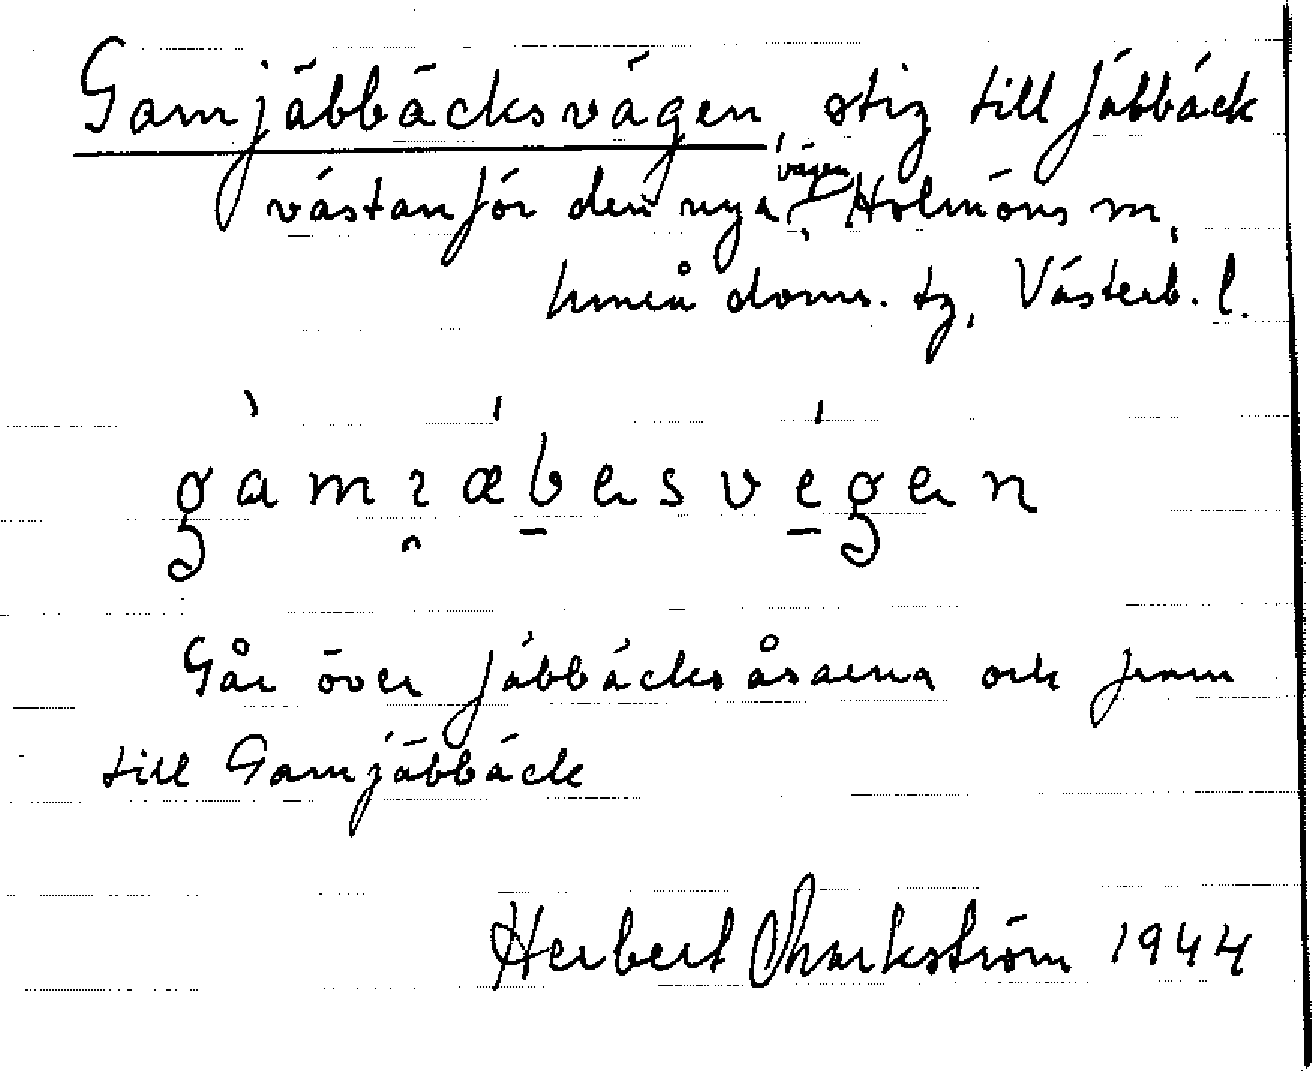 Gamjäbbäcksvägen, stig till Jäbbäck
västanför den nya vägen, Holmöns sn,
Umeå doms. tg, Västerb. l.
Går över Jäbbäcksåsarna och fram
till Gamjäbbäck
Herbert Markström 1944